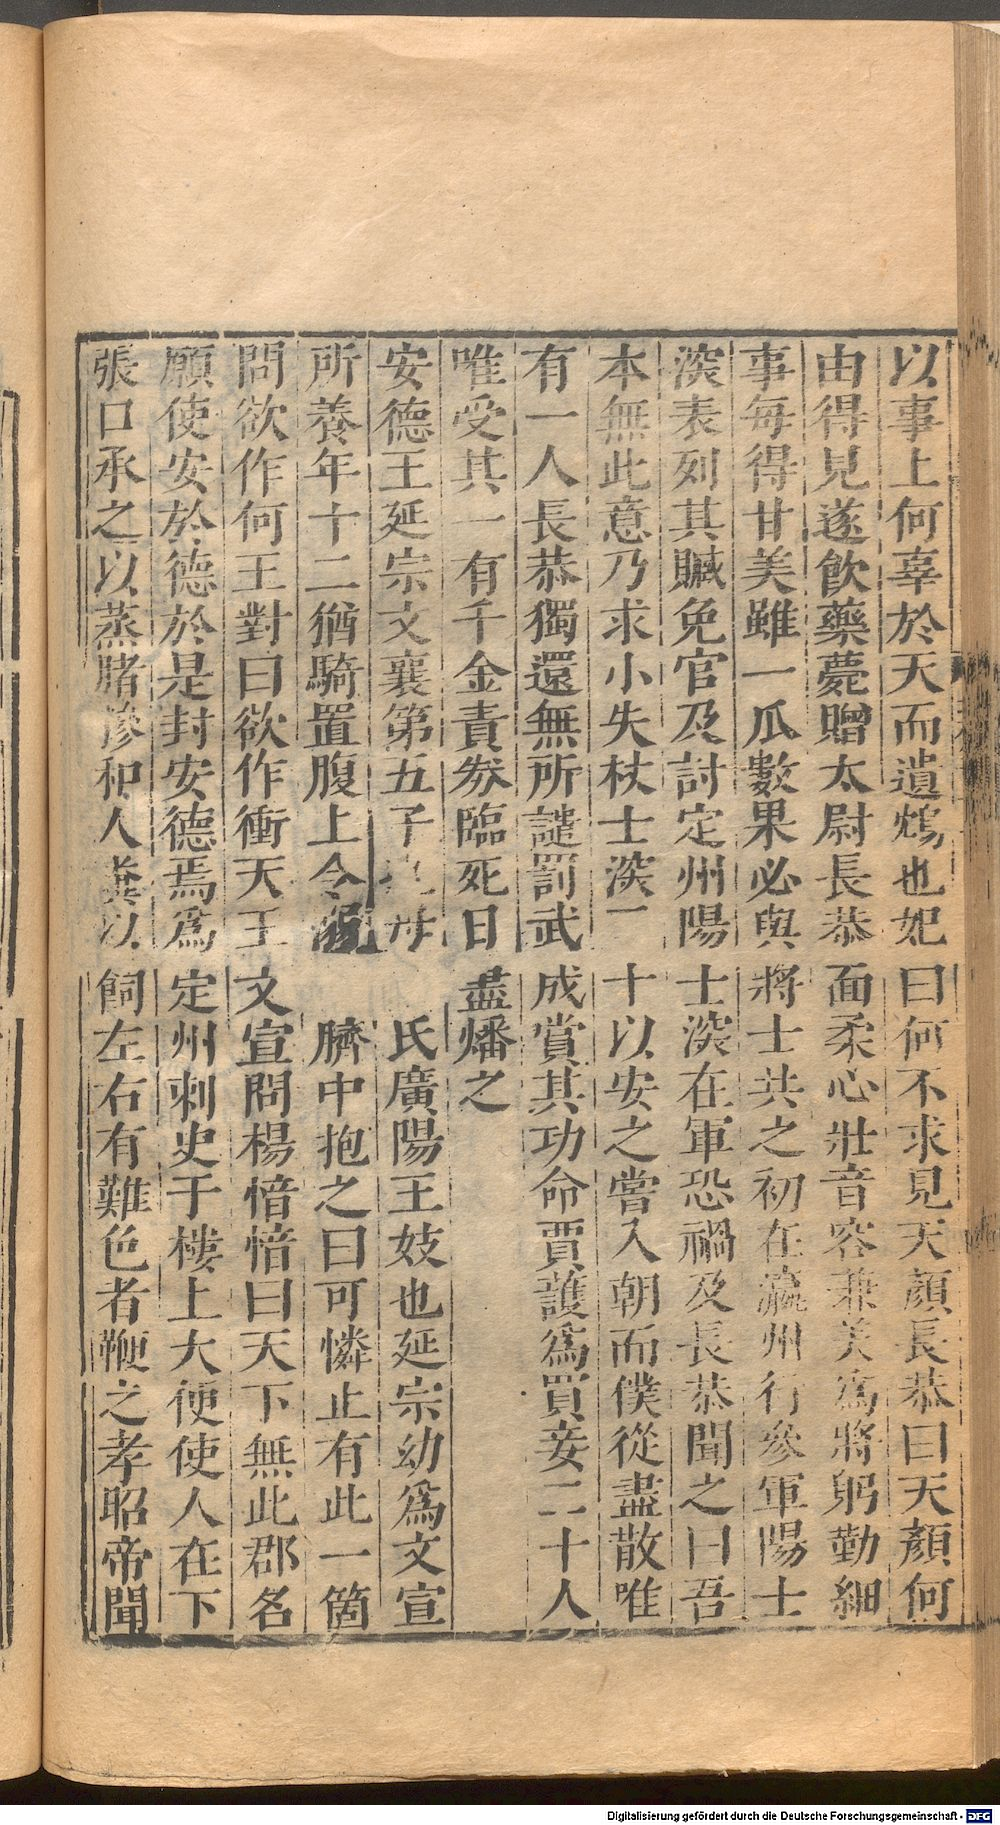 以事上何辜於天而遺鴆也妃曰何不求見天顏長恭曰天顏何
由得見遂飲藥薨贈太尉長恭面柔心壯音容兼美為將躬勤細
事每得甘美雖一瓜數果必與將士共之初在瀛州行參軍陽士
深表列其贓免官及討定州陽士深在軍恐禍及長恭聞之曰吾
本無此意乃求小失杖士深二十以安之嘗入朝而僕從盡散唯
有一人長恭獨還無所譴罰武成賞其功命賈護為買妾二十人
唯受其一有千金責券臨死日盡燔之
安德王延宗文襄第五子也母氏廣陽王妓也延宗幼為文宣
所養年十二猶騎置腹上令溺臍中抱之曰可憐止有此一箇
問欲作何王對曰欲作衝天王文宣問楊愔愔曰天下無此郡名
願使安於德於是封安德焉為定州刺史于樓上大便使人在下
張口承之以蒸豬糝和人糞以飼左右有難色者鞭之孝昭帝聞
Digitalisierung gefördert durch die Deutsche Forschungsgemeinschaft - DFG